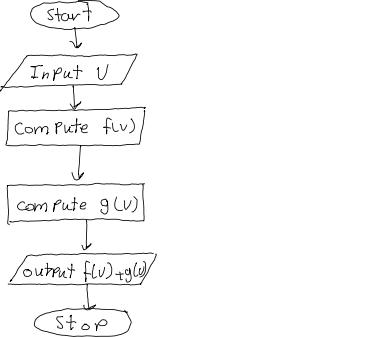 Start
Input U
Compute f(v)
Compute g(v)
output f(v)+g(v)
Stop